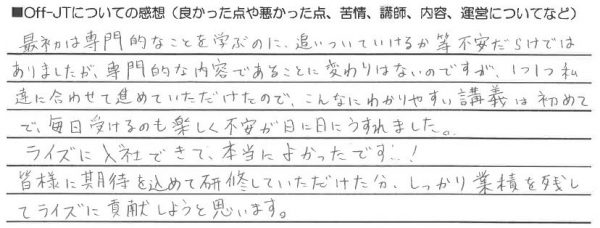 ■Off-JTについての感想（良かった点や悪かった点、苦情、講師、内容、運営についてなど）
最初は専門的なことを学ぶのに、追いついていけるか等不安だらけでは
ありましたが、専門的な内容であることに変わりはないのですが、1つ1つ私
達に合わせて進めていただけたので、こんなにわかりやすい講義は初めて
で、毎日受けるのも楽しく不安が日に日にうすれました。
ライズに入社できて、本当によかったです..!
皆様に期待を込めて研修していただけた分、しっかり業績を残し
てライズに貢献しようと思います。